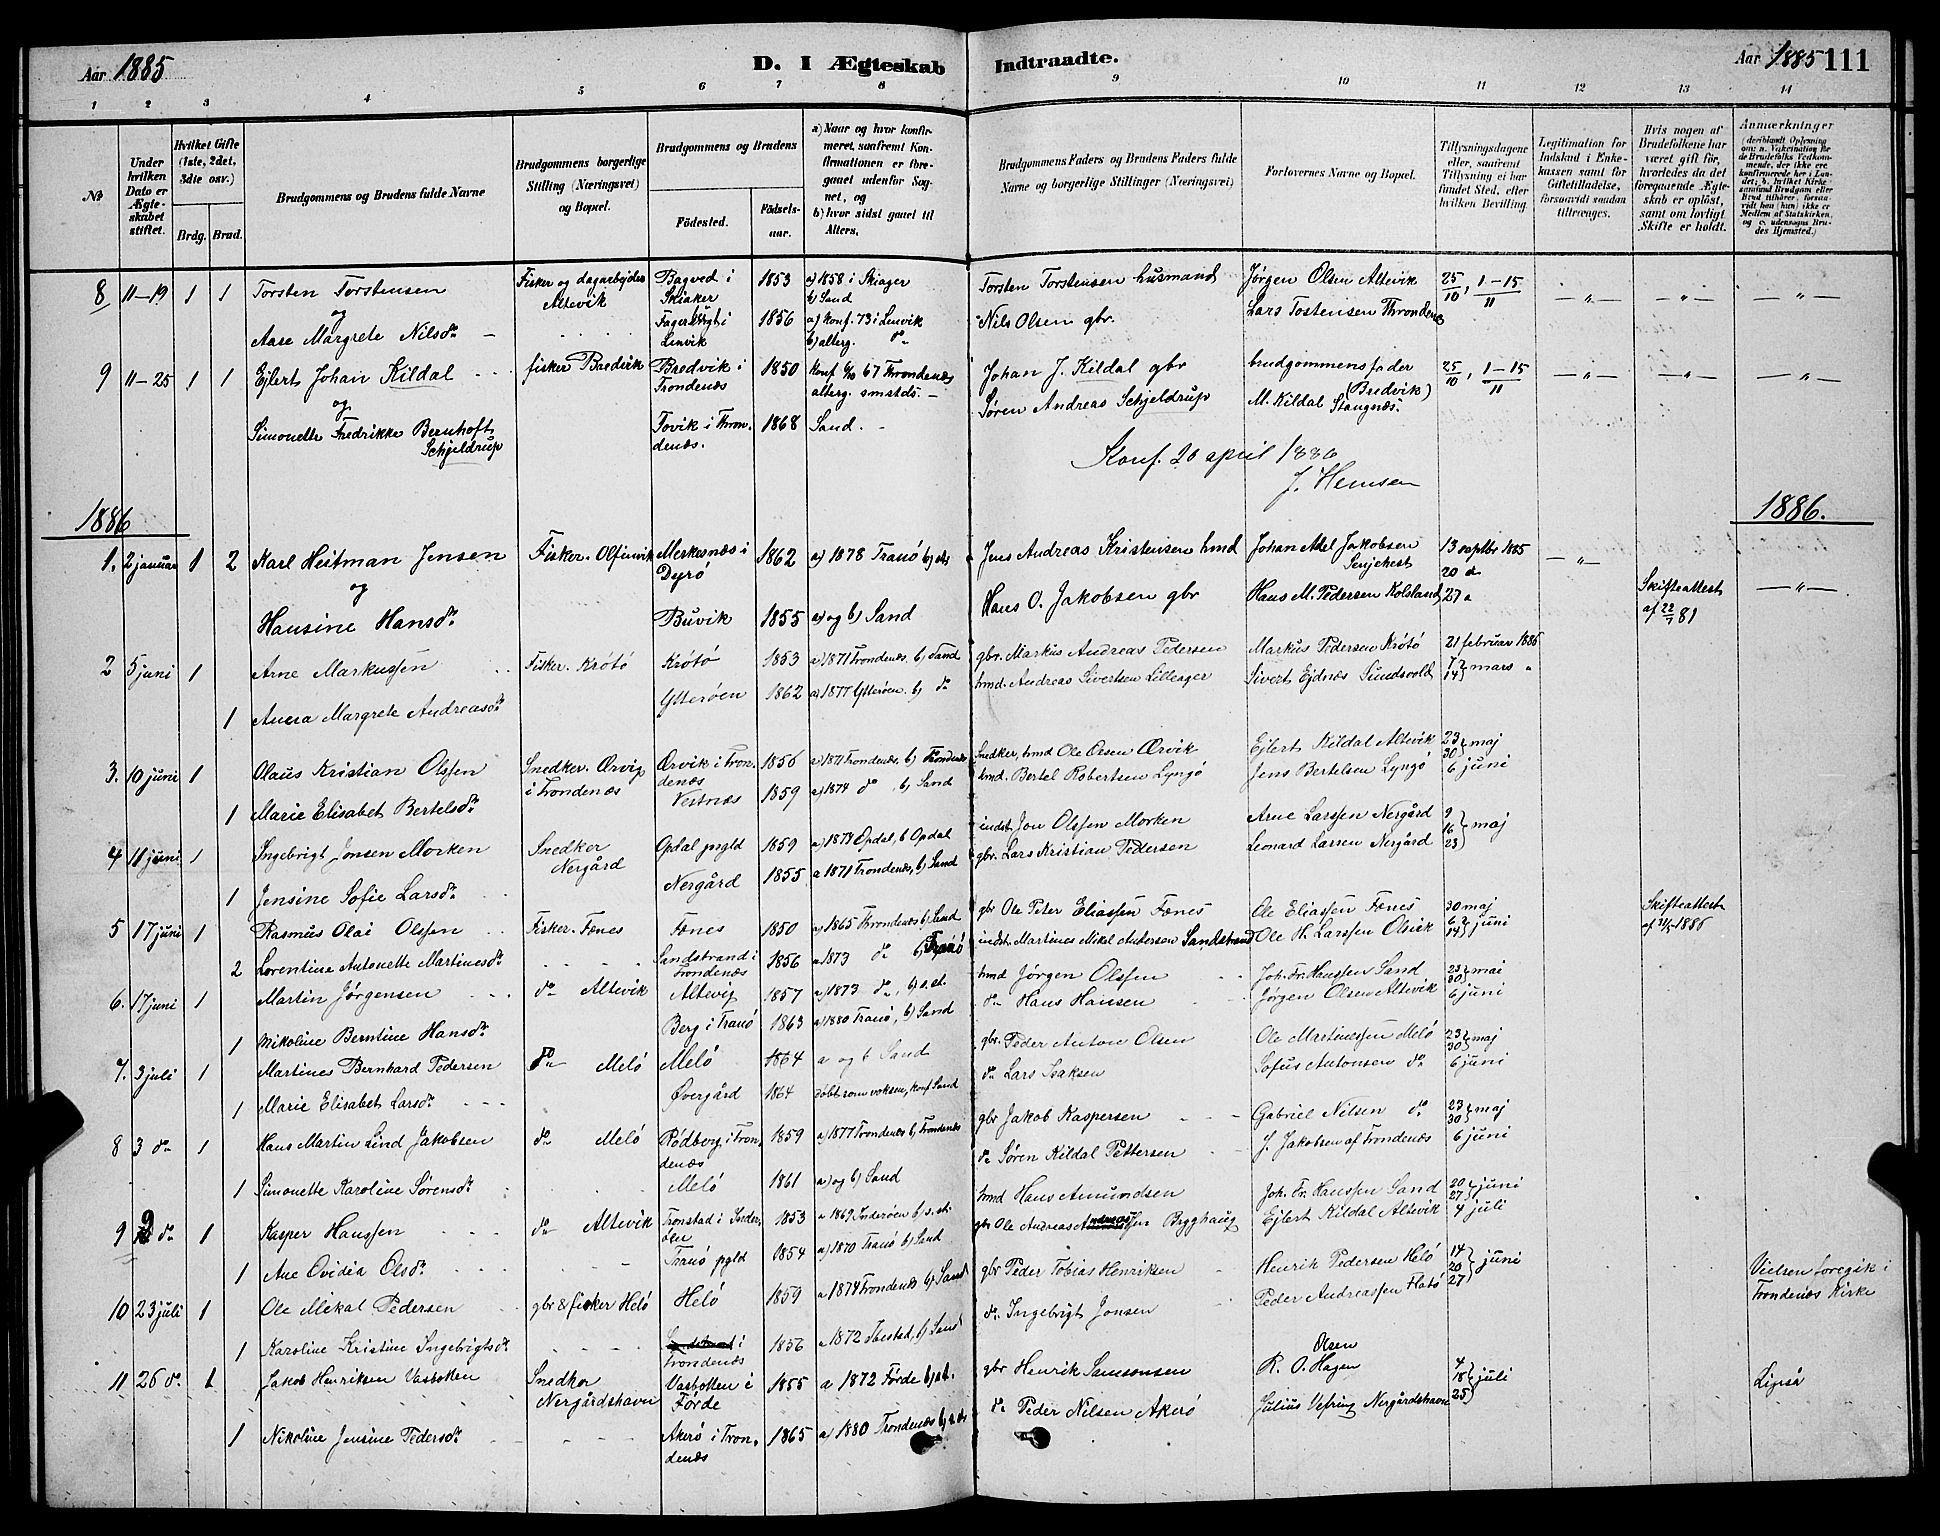 Aar 1885
D. I Ægteskab Indtraadte.
Aar 1885 111
1 2 3 4 5 6 7 8 9 10 11 12 13 14
No
Under hvilken Dato er Ægteskabet stiftet.
Hvilket Gifte (1ste, 2det, 3die osv.)
Brdg. Brud.
Brudgommens og Brudens fulde Navne
Brudgommens borgerlige Stilling (Næringsvei) og Bopæl.
Brudgommens og Brudens
Födested.
Födselsaar.
a) Naar og hvor konfirmeret, saafremt Konfirmationen er foregaaet udenfor Sognet, og
b) hvor sidst gaaet til Alters.
Brudgommens Faders og Brudens Faders fulde Navne og borgerlige Stillinger (Næringsvei)
Forlovernes Navne og Bopæl.
Tillysningsdagene eller, saafremt Tillysning ei har fundet Sted, efter hvilken Bevilling
Legitimation for Indskud i Enkekassen samt for Giftetilladelse, forsaavidt saadan tiltrænges.
Hvis nogen af Brudefolkene har været gift før, hvorledes da det foregaaende Ægteskab er opløst, samt om lovligt Skifte er holdt.
Anmærkninger (deriblandt Oplysning om: a. Vakcination for de Brudefolks Vedkommende, der ikke ere konfirmerede her i Landet; b. hvilket Kirkesamfund Brudgom eller Brud tilhører, forsaavidt han (hun) ikke er Medlem af Statskirken, og c. udensogns Brudes Hjemsted.)
8 11-19 1 1 Torsten Torstensen Fisker og dagarbejder Altevik Bagved i Skiaker 1853 a) 1858 i Skiager b) Sand Torsten Torstensen husmand Jørgen Olsen Altevik 25/10, 1-15/11 -"- -"- -"-
og
Aase Margrete Nilsdr. - Lenvik 1856 a) konf. 73 i Lenvik b) alterg. do Nils Olsen gbr. Lars Tostensen Throndenes
9 11-25 1 1 Ejlert Johan Kildal fisker Bredvik i Trondenæs 1850 konf 67 Throndenæs alterg. smsteds. - Johan J. Kildal gbr brudgommens fader (Bredvik) 25/10, 1-15/11 -"- -"- -"-
og
Simonette Fredrikke Bernhoft Schjeldrup Tovik i Throndenæs. 1868 Sand. - Søren Andreas Schjeldrup M. Kildal Stangnæs.
Konf. 20 april 1886
J. Hemsen
1886 1886.
1. 2 januar 1 2 Karl Heitman Jensen Fisker. Merkesnæs i Dyrö 1862 a) 1878 Tranö Jens Andreas Kristensen hmd Johan Abel Jakobsen Senjehest 13 septbr 1885 20 d -"-
og
Hansine Hansdr. Buvik 1855 a) og b) Sand Hans O. Jakobsen gbr Hans M. Pedersen Kolsland 27 " Skifteattest af 22/7 81 -"-
2 5 juni 1 Arne Markussen Fisker. Krötö Krötö 1853 a) 1871 Trondenæs. b) Sand gbr. Markus Andreas Pedersen Markus Pedersen Krötö 21 februar 1886
1 Anna Margrete Andreasdr. Ytterøen 1862 a) 1877 Ytterøen. b) do hmd. Andreas Sivertsen Lilleager Sivert Ejdnæs Sundsvold 7 14 } mars "
3. 10 juni 1 Olaus Kristian Olssen Snedker. Ørvig i Trondenæs Ørvik i Trondenæs 1856 a) 1871 Trondenæs b) Trondenæs Snedker, hmd Ole Olsen Ørvik Ejlert Kildal Altevik 23 30 } maj
1 Marie Elisabet Bertelsdr. Vestnæs 1859 a) 1874 do, b) Sand hmd. Bertel Robertsen Lyngö Jens Bertelsen Lyngö 6 juni
4 11 juni 1 Ingebrigt Jonsen Morken Snedker Nergård Opdal pngld 1859 a) 1874 Opdal, b Opdal indst Jon Olssen Morken Arne Larssen Nergård 9 16 23 } maj
1 Jensine Sofie Larsdr. Nergård 1855 a 1871 Trondenæs, b) Sand gbr. Lars Kristian Pedersen Leonard Larsen Nergård
5 17 juni 1 Rasmus Olai Olssen Fisker. Fænes Fænes 1850 a) 1865 Throndenæs b) Sand gbr Ole Peter Eliassen Fænes Ole Eliassen Fænes 30 maj Skifteattest af 11/5 1886
2 Lorentine Antonette Martinesdr. Sandstrand i Trondenæs 1856 a 1873 do b) Tranö indst. Martines Mikal Andersen Sandstrand Ole H. Larssen Olvik 6 14 } juni
6. 17 juni 1 Martin Jørgensen do Altevik Altevig 1857 a) 1873 do, b) s.st. hmd Jørgen Olssen Joh. Fr. Hanssen Sand 23 30 } mai
1 Nikoline Berntine Hansdr. Berg i Tranö 1863 a) 1880 Tranö, b) Sand do Hans Hansen Jørgen Olsen Altevik 6 juni
7. 3 juli 1 Martines Bernhard Pedersen do Melö Melö 1864 a og b Sand gbr. Peder Anton Olsen Ole Martinussen Melö 23 30 } maj
1 Marie Elisabet Larsdr. Øvergård 1864 døbt som voksen, konf Sand do Lars Isaksen Sofus Antonsen do 6 juni
8 3 do 1 Hans Martin Lind Jakobsen do Melö Rödberg i Trondenæs 1859 a) 1877 Trondenæs b) Trondenæs gbr Jakob Kaspersen Gabriel Nilsen do 23 30 } maj
1 Simonette Karoline Sørensdr. Melö 1861 a) og b) Sand do Søren Kildal Pettersen J. Jakobsen af Trondenæs 6 juni
9 9 do 1 Kasper Hanssen do Altevik Tronstad i Inderöen 1853 a 1869 Inderøen b) s.st. hmd Hans Amundsen Joh. Fr. Hanssen Sand 20 27 } juni
1 Ane Ovidia Olsdr. Tranö pgld 1854 a) 1870 Tranö b) Sand gbr Ole Andreas Andreassen Bygghaug Ejlert Kildal Altevik 4 juli
10 23 juli 1 Ole Mikal Pedersen gbr & fisker Helö Helö 1859 a 1874 Trondenæs b) Sand gbr Peder Tobias Henriksen Henrik Pedersen Helö 14 20 27 } juni Vielsen foregik i Trondenæs Kirke
1 Karoline Kristine Ingebrigtsdr. i Trondenæs 1856 a 1872 Ibestad, b) Sand do Ingebrigt Jonsen Peder Andreassen Flatö
11 26 do. 1 Jakob Henriksen Vasbotten Snedker Nergårdshavn Vasbotten i Førde 1855 a 1872 Førde b) s.st. gbr Henrik Samsonsen R. O. Olsen Hagen 4 18 25 } juli
1 Nikoline Jensine Pedersdr. Akerö i Trondenæs 1865 a) 1880 Trondenæs b) s.st. do Peder Nilsen Akerö Julius Vefring Nergårdshavn